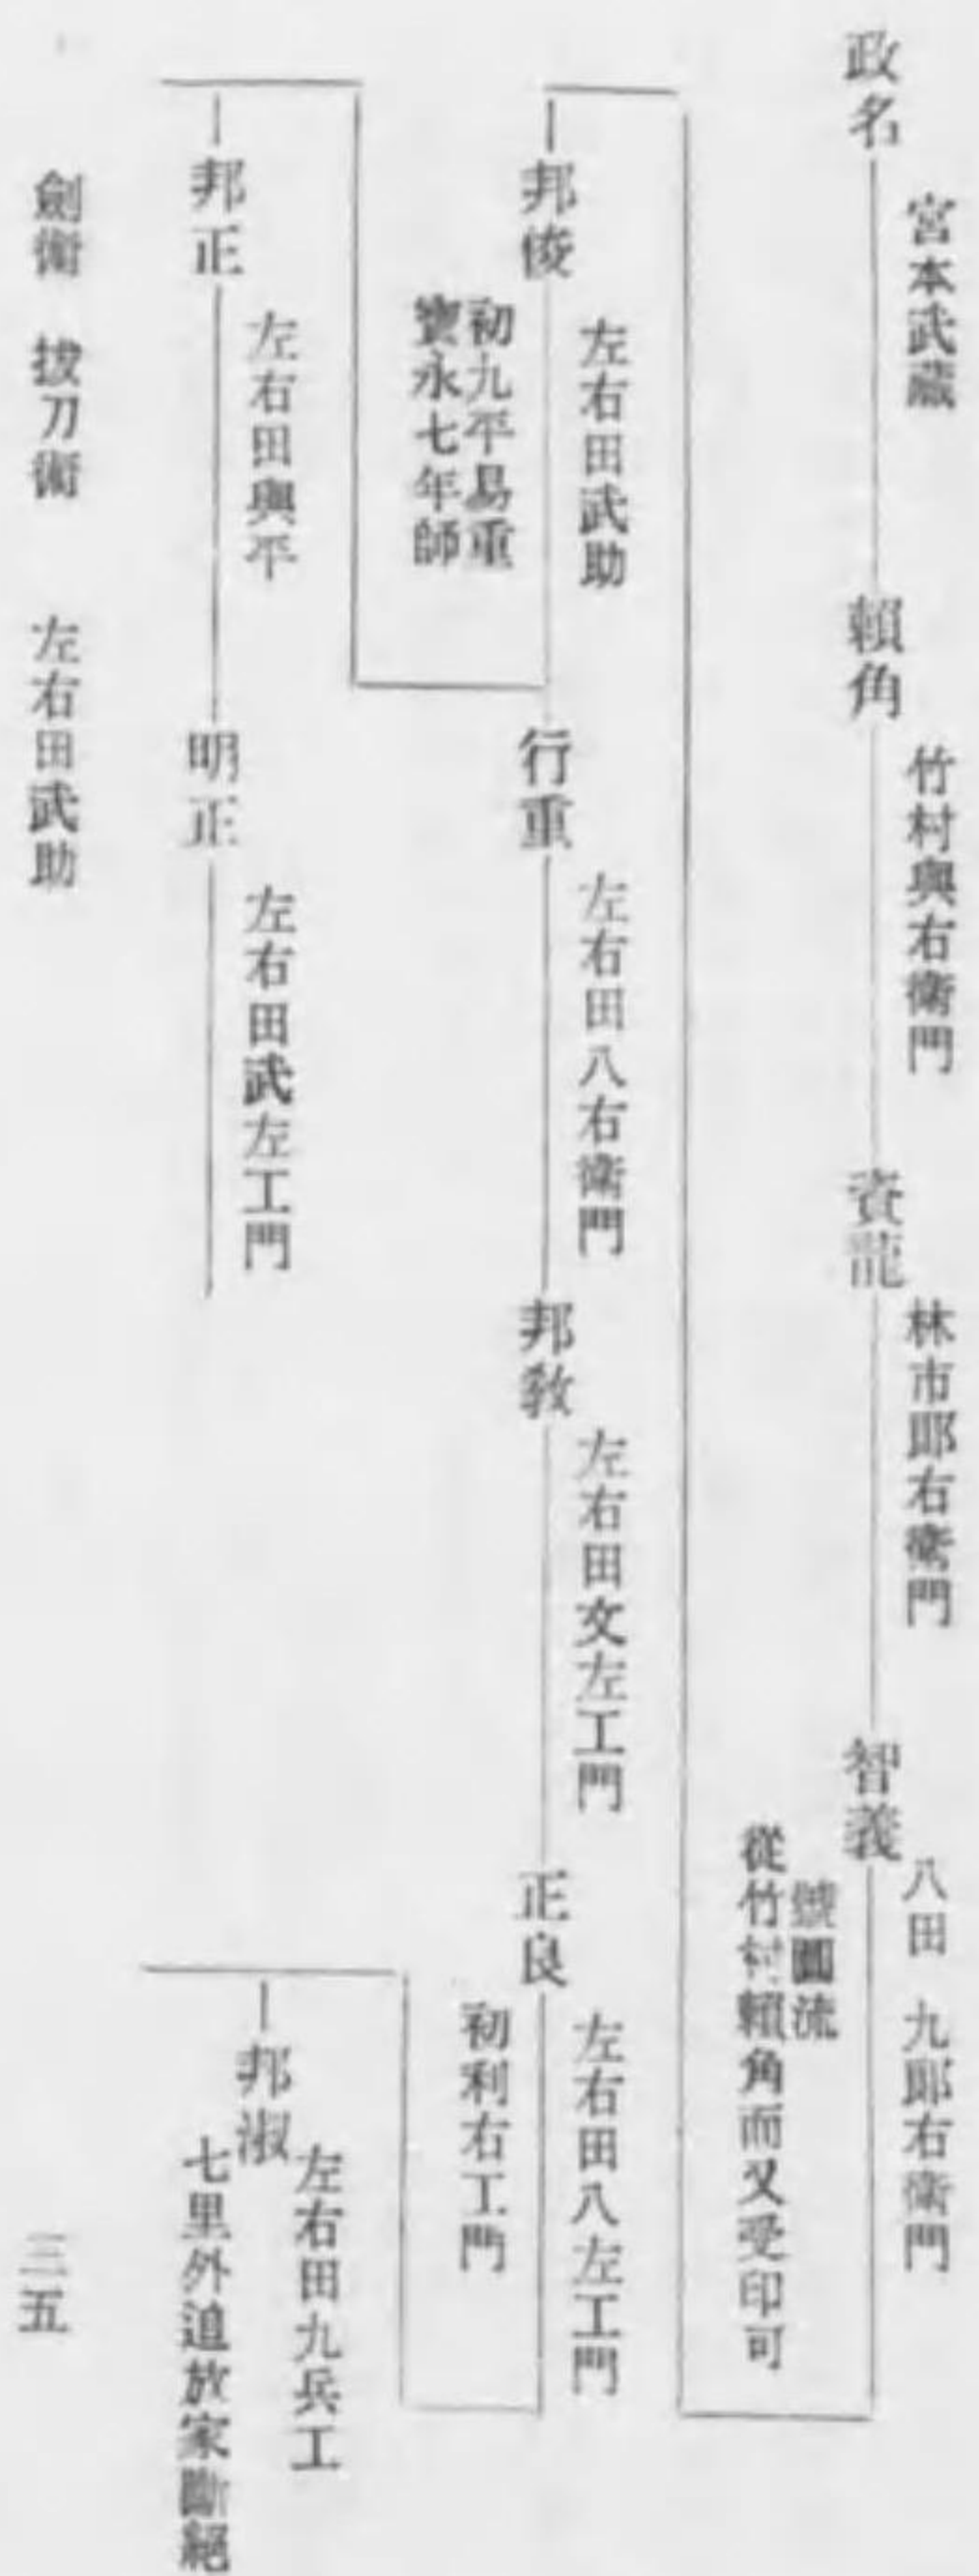 政名
宮本武藏
賴角
竹村與右衞門
資龍
林市郎右衞門
智義
八田九郎右衞門
號圓流
從竹村賴角而又受印可
邦俊
左右田武助
初九平易重
寳永七年師
行重
左右田八右衞門
邦教
左右田文左工門
正良
左右田八左工門
初利右工門
邦正
左右田與平
明正
左右田武左工門
邦淑
左右田九兵工
七里外追放家斷絕
劍術 拔刀術 左右田武助
三五